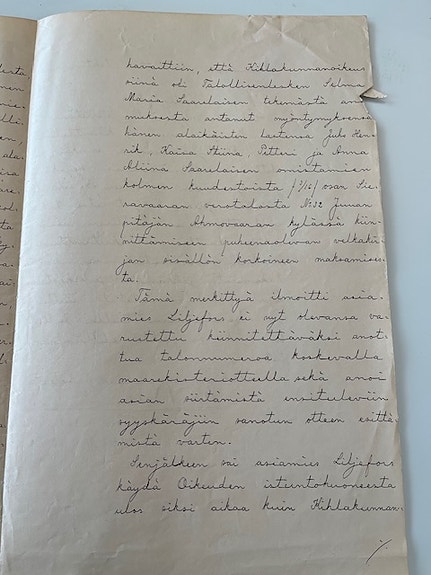 havaittiin, että Kihlakunnanoikeus
siinä oli Talollisenlesken Selma
Maria Saarelaisen tekemästä an
muksesta antanut myöntymyksensä
hänen alaikäisten lastensa Juho Hen-
rik, Kaisa Stiina, Petteri ja Anna
Aliina Saarelaisen omistamien
kolmen kuudentoista /3/16/ osan Sie-
ravaaran verotalosta No 32 Juuan
pitäjän Ahmovaaran kylässä kiin-
nittämiseen puheenaolevan velkakir-
jan sisällön korkoineen maksamises-
ta.
Tämä merkittyä ilmoitti asia-
mies Liljefors ei nyt olevansa va-
rustettu kiinnitettäväksi anot-
tua talonnumeroa koskevalla
maarekisteriotteella sekä anoi
asian siirtämistä ensituleviin
syyskäräjiin sanotun otteen esittä-
mistä varten.
Senjälkeen sai asiamies Liljefors
käydä Oikeuden istuntohuoneesta
ulos siksi aikaa kuin Kihlakunnan-